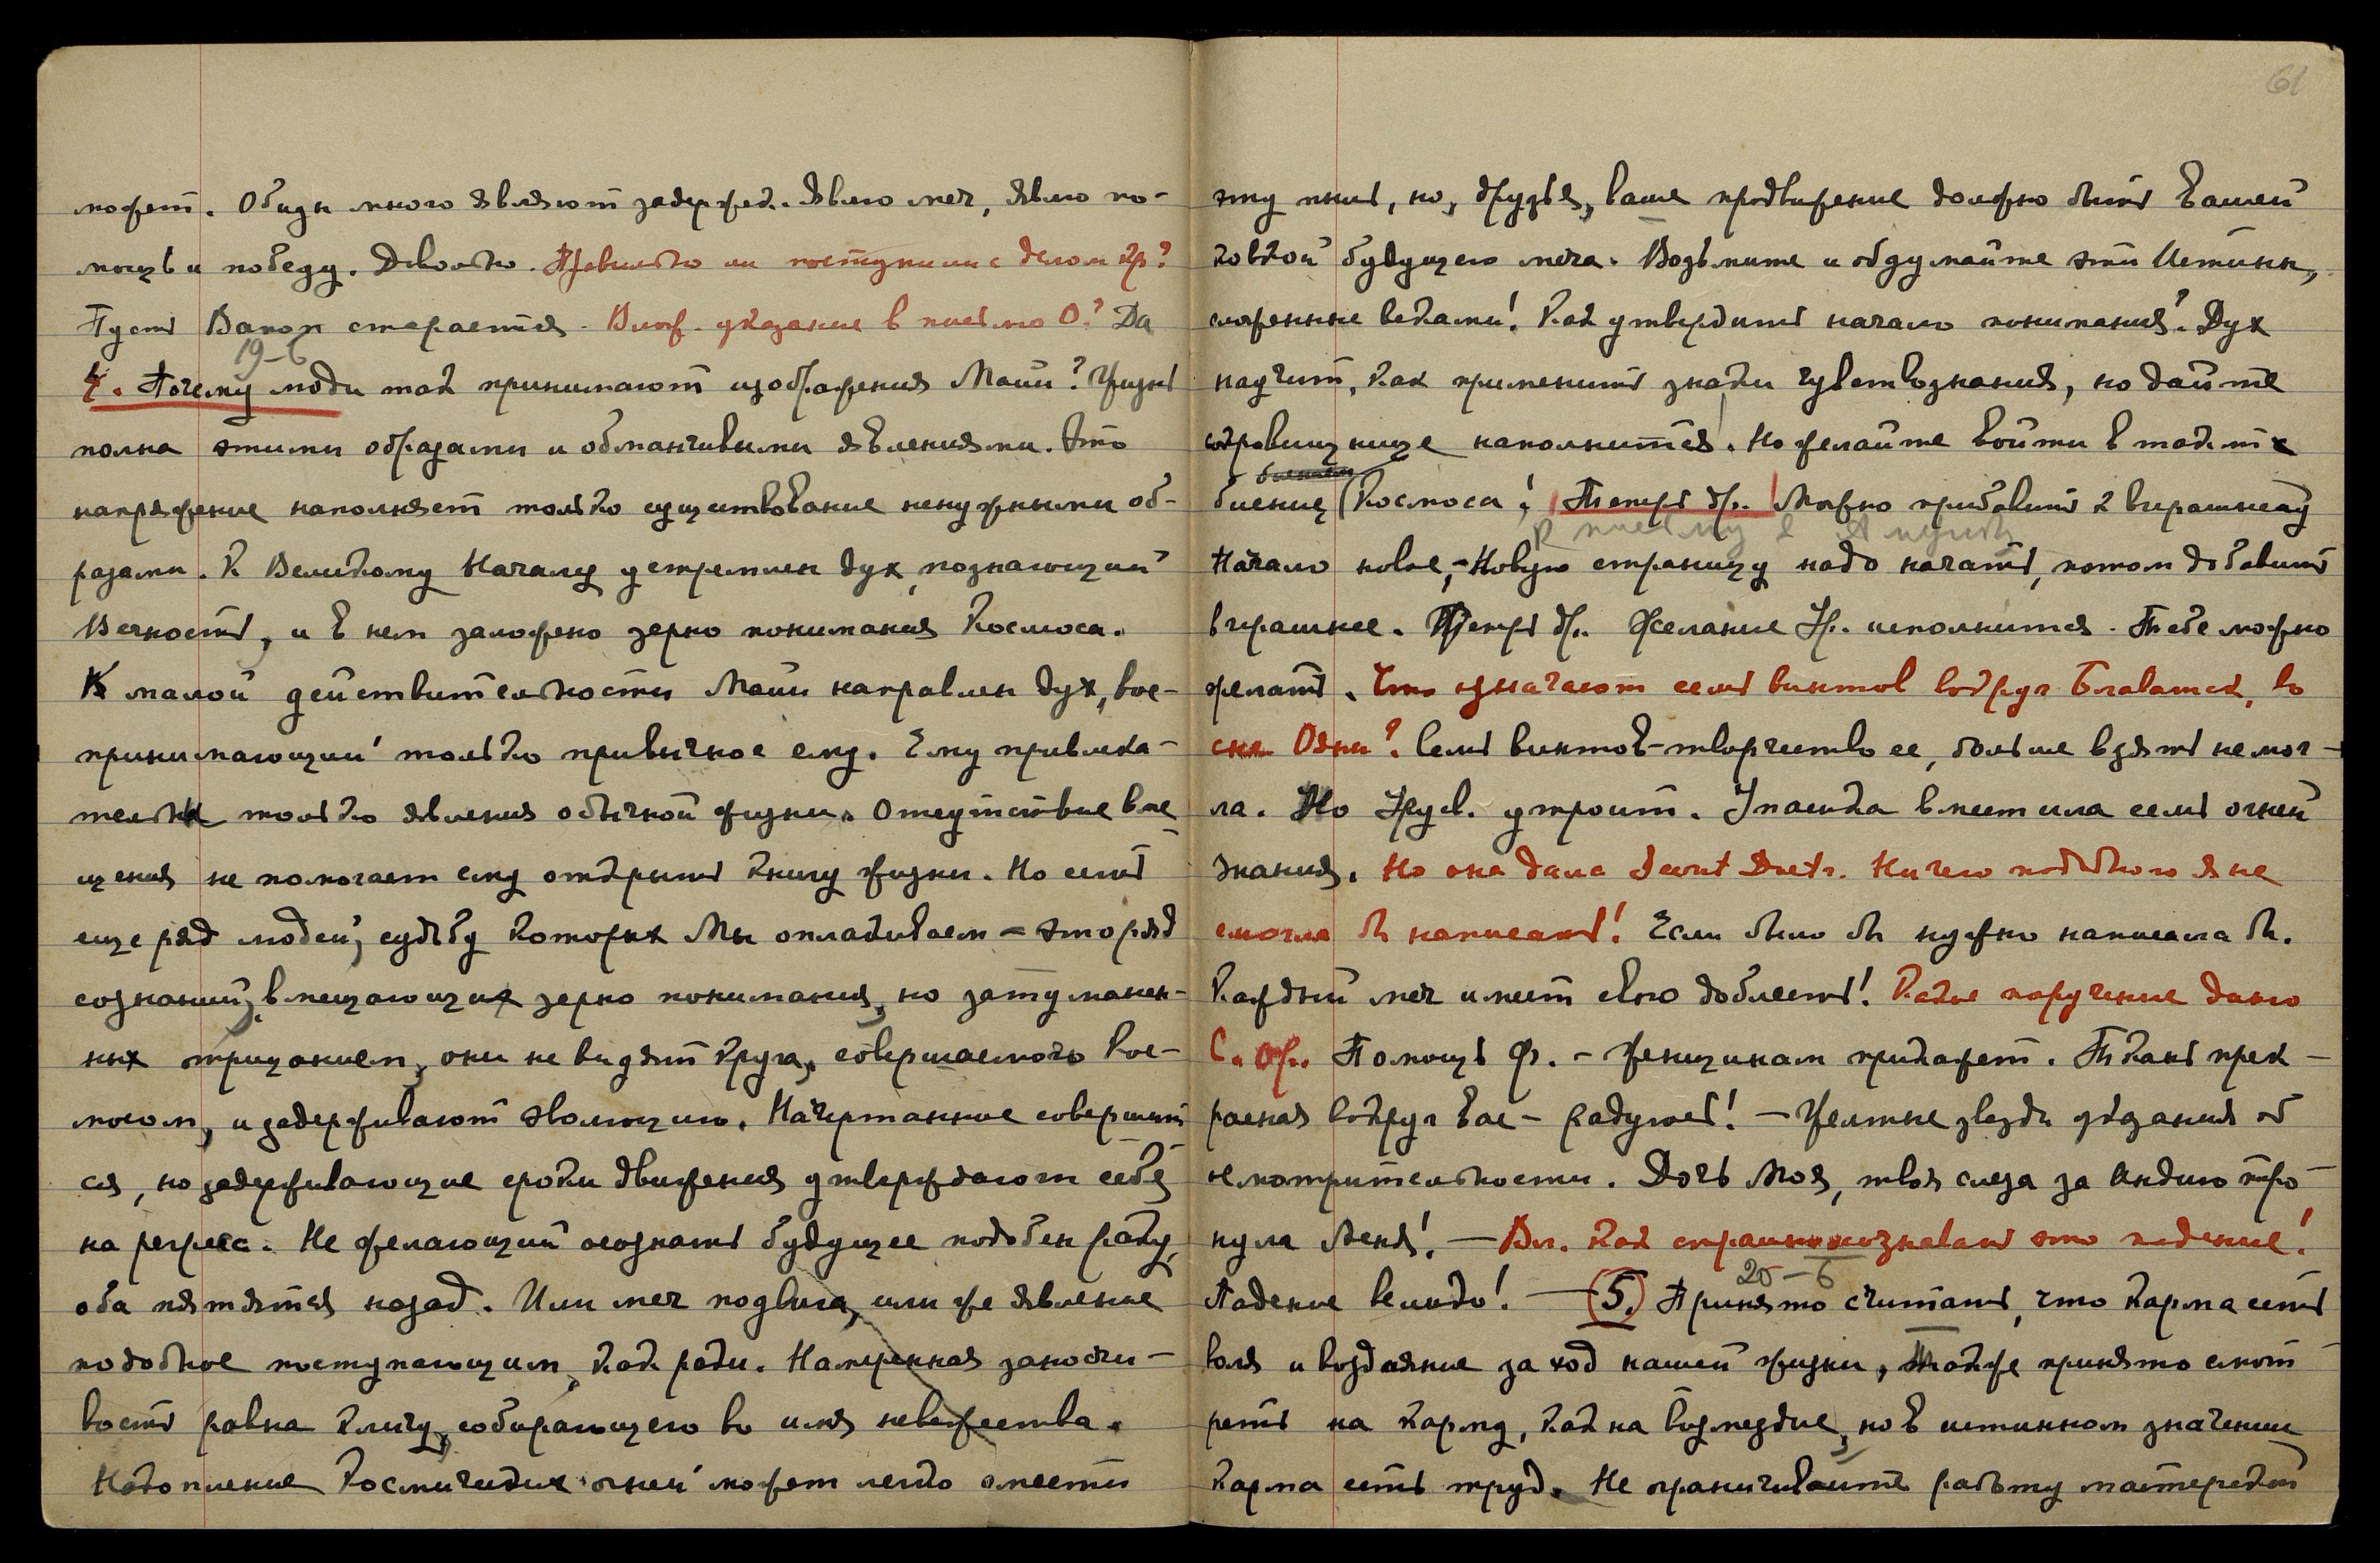 может. Обиды много являют задержек. Явлю меч, явлю по-
мощь и победу. Довольно. Правильно ли поступили с делом Кр?
Пусть стирается. указание в письмо О? Да
19-6
4. Почему люди так принимают изображения Майи? Жизнь
полна этими образами и обманчивыми явлениями. Это
напряжение наполняет только существование ненужными об-
разами. К Великому Началу устремлен дух, познающий
Вечность, и в нем заложено зерно понимания Космоса.
К малой действительности Майи направлен дух, вос-
принимающий только привычное ему. Ему привлека-
тельны только явления обычной жизни. Отсутствие вме-
щения не помогает ему открыть книгу жизни. Но есть
еще ряд людей, судьбу которых Мы оплакиваем – это ряд
сознаний, вмещающих зерно понимания, но затуманен-
ных отрицанием, они не видят круга, совершаемого Кос-
мосом, и задерживают эволюцию. Начертанное совершит-
ся, но задерживающие сроки движения утверждают себя
на регресс. Не желающий осознать будущее подобен раку,
оба пятятся назад. Или меч подвига, или же явление
подобное поступающим, как раки. Намеренная заносчи-
вость равна кличу, собирающего во имя невежества.
Накопление Космических огней может легко смести
61
эту пыль, но, друзья, ваше продвижение должно быть Вашей
ковкой будущего меча. Возьмите и обдумайте эти Истины,
сложенные веками! Как утвердить начало понимания? Дух
научит, как применить знаки чувствознания, но дайте
сокровищнице наполниться. Но желайте войти в такт
биение (Космоса! Теперь др. Можно прибавить к вчерашнему
к письму в
Начало новое, – Новую страницу надо начать, потом добавить
вчерашнее. Теперь др. Желание Др. исполнится. Тебе можно
желать. Что означают семь винтов вокруг Блаватск, во
сне Ояны? Семь винтов – творчество ее, больше взять не мог-
ла. Но Урусв. утроит. Упасика вместила семь огней
знания. Но она дала Secret Doctr. Ничего подобного я не
смогла бы написать! Если было бы нужно написала бы.
Каждый меч имеет свою доблесть! Какое поручение дано
С. Ор. Помощь Ф. – женщинам прикажет. Ткань прек-
расная вокруг Вас – радуюсь! – Желтые звезды указания об
осмотрительности. Дочь Моя, твоя слеза за Индию тро-
нула Меня! – Вл. как страшно сознавать это падение!
20-6
Падение велико! – 5. Принято считать, что Карма есть
воля и воздаяние за ход нашей жизни, Также принято смот-
реть на Карму, как на возмездие, но в истинном значении
Карма есть труд. Не ограничивайте работу мастерской